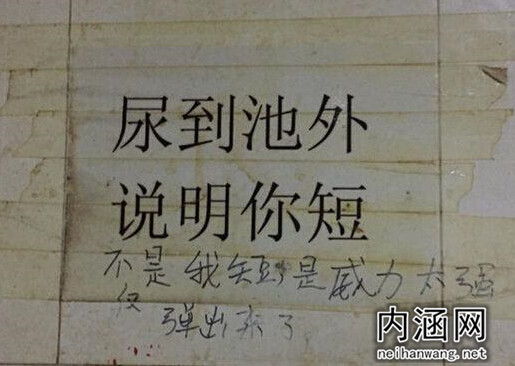 尿到池外
说明你短
不是我短是威力太强
弹出来了
内涵网
neihanwang.net